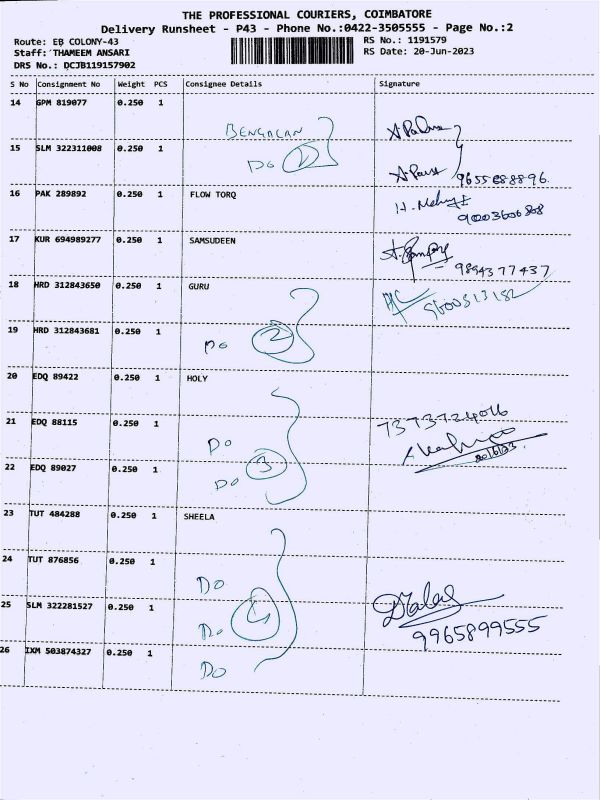 THE PROFESSIONAL COURIERS, COIMBATORE
Delivery Runsheet - P43 - Phone No.:0422-3505555 - Page No.:2
Route: EB COLONY-43
RS No.: 1191579
Staff: THAMEEM ANSARI
RS Date: 20-Jun-2023
DRS No.: DCJB119157902
S No Consignment No Weight PCS Consignee Details Signature
14 GPM 819077 0.250 1
BENGALAN
15 SLM 322311008 0.250 1
Do 2
9655888896
16 PAK 289892 0.250 1 FLOW TORQ
9003606808
17 KUR 694989277 0.250 1 SAMSUDEEN
9894377437
18 HRD 312843650 0.250 1 GURU
9600313182
19 HRD 312843681 0.250 1
Do 2
20 EDQ 89422 0.250 1 HOLY
7373724016
21 EDQ 88115 0.250 1
Do
20/6/23
22 EDQ 89027 0.250 1
Do 3
23 TUT 484288 0.250 1 SHEELA
24 TUT 876856 0.250 1
Do
25 SLM 322281527 0.250 1
Do 4
9965899555
26 IXM 503874327 0.250 1
Do